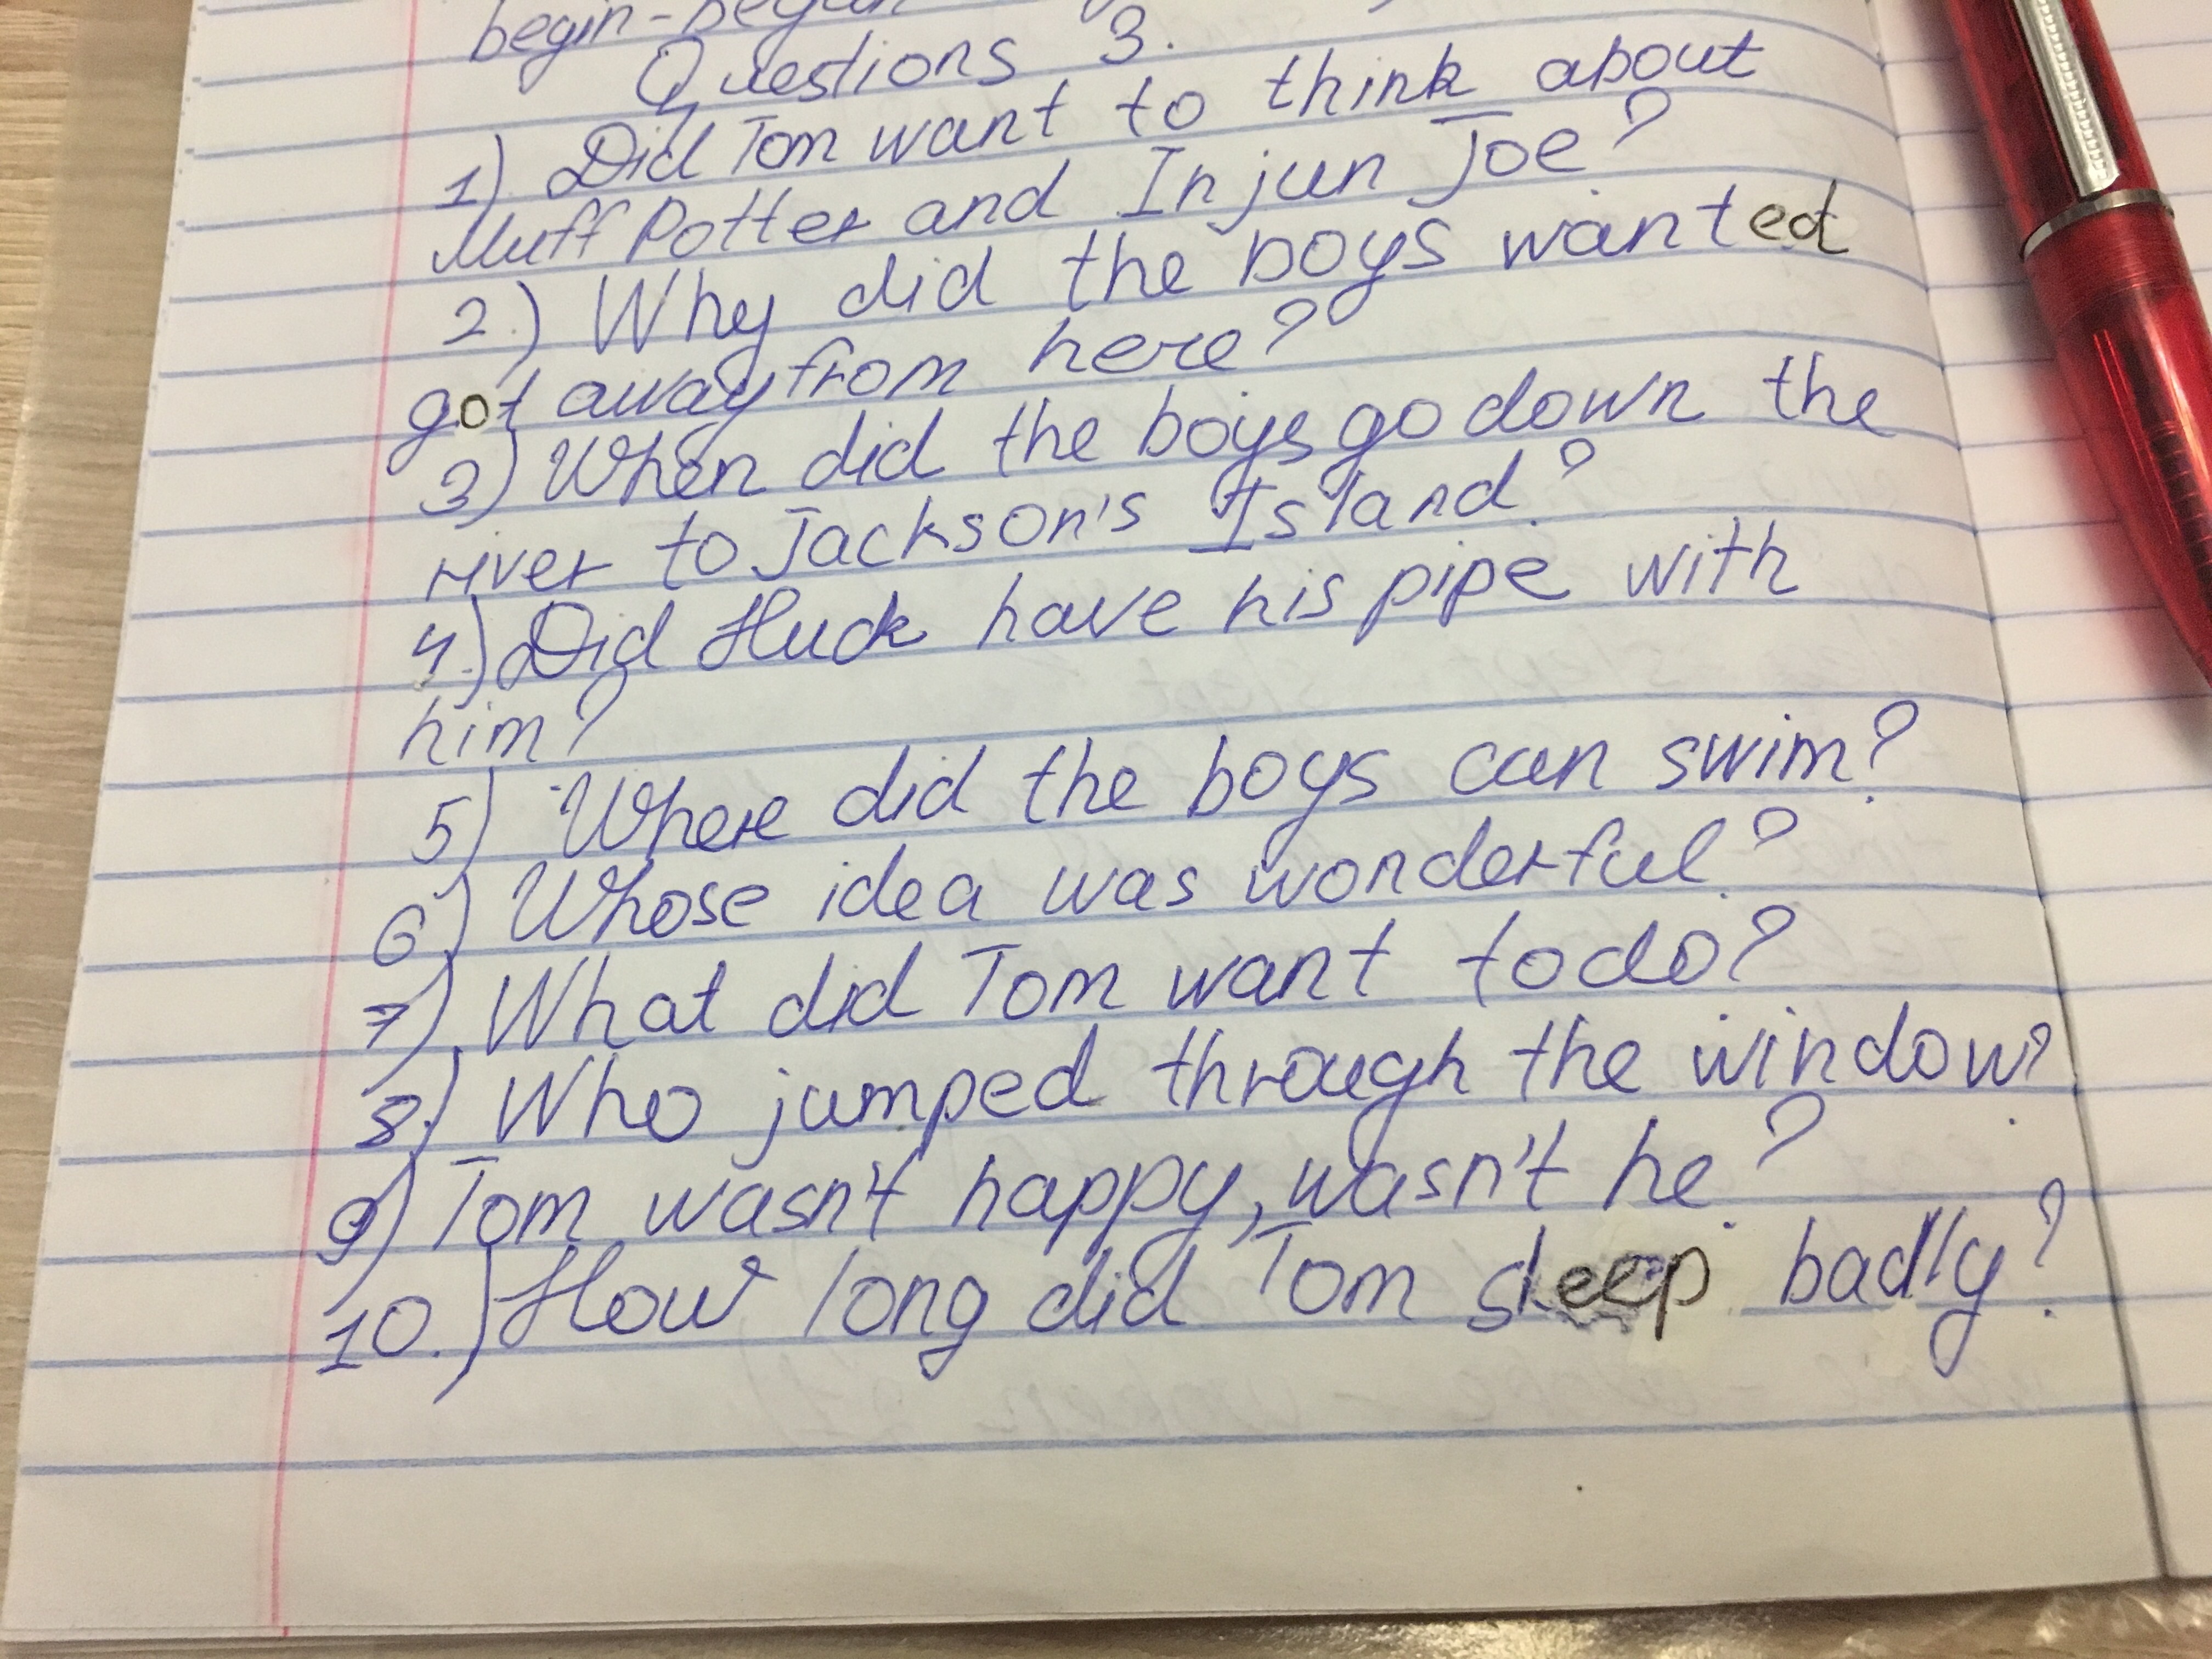 begin-begun
Questions ч3.
1) Did Tom want to think about
Muff Potter and Injun Joe?
2.) Why did the boys wanted
got away from here?
3) When did the boys go down the
river to Jackson's Island?
4.) Did Huck have his pipe with
him?
5) Where did the boys can swim?
6.) Whose idea was wonderful?
7) What did Tom want to do?
8.) Who jumped through the window?
9) Tom wasn't happy, wasn't he?
10.) How long did Tom sleep badly?